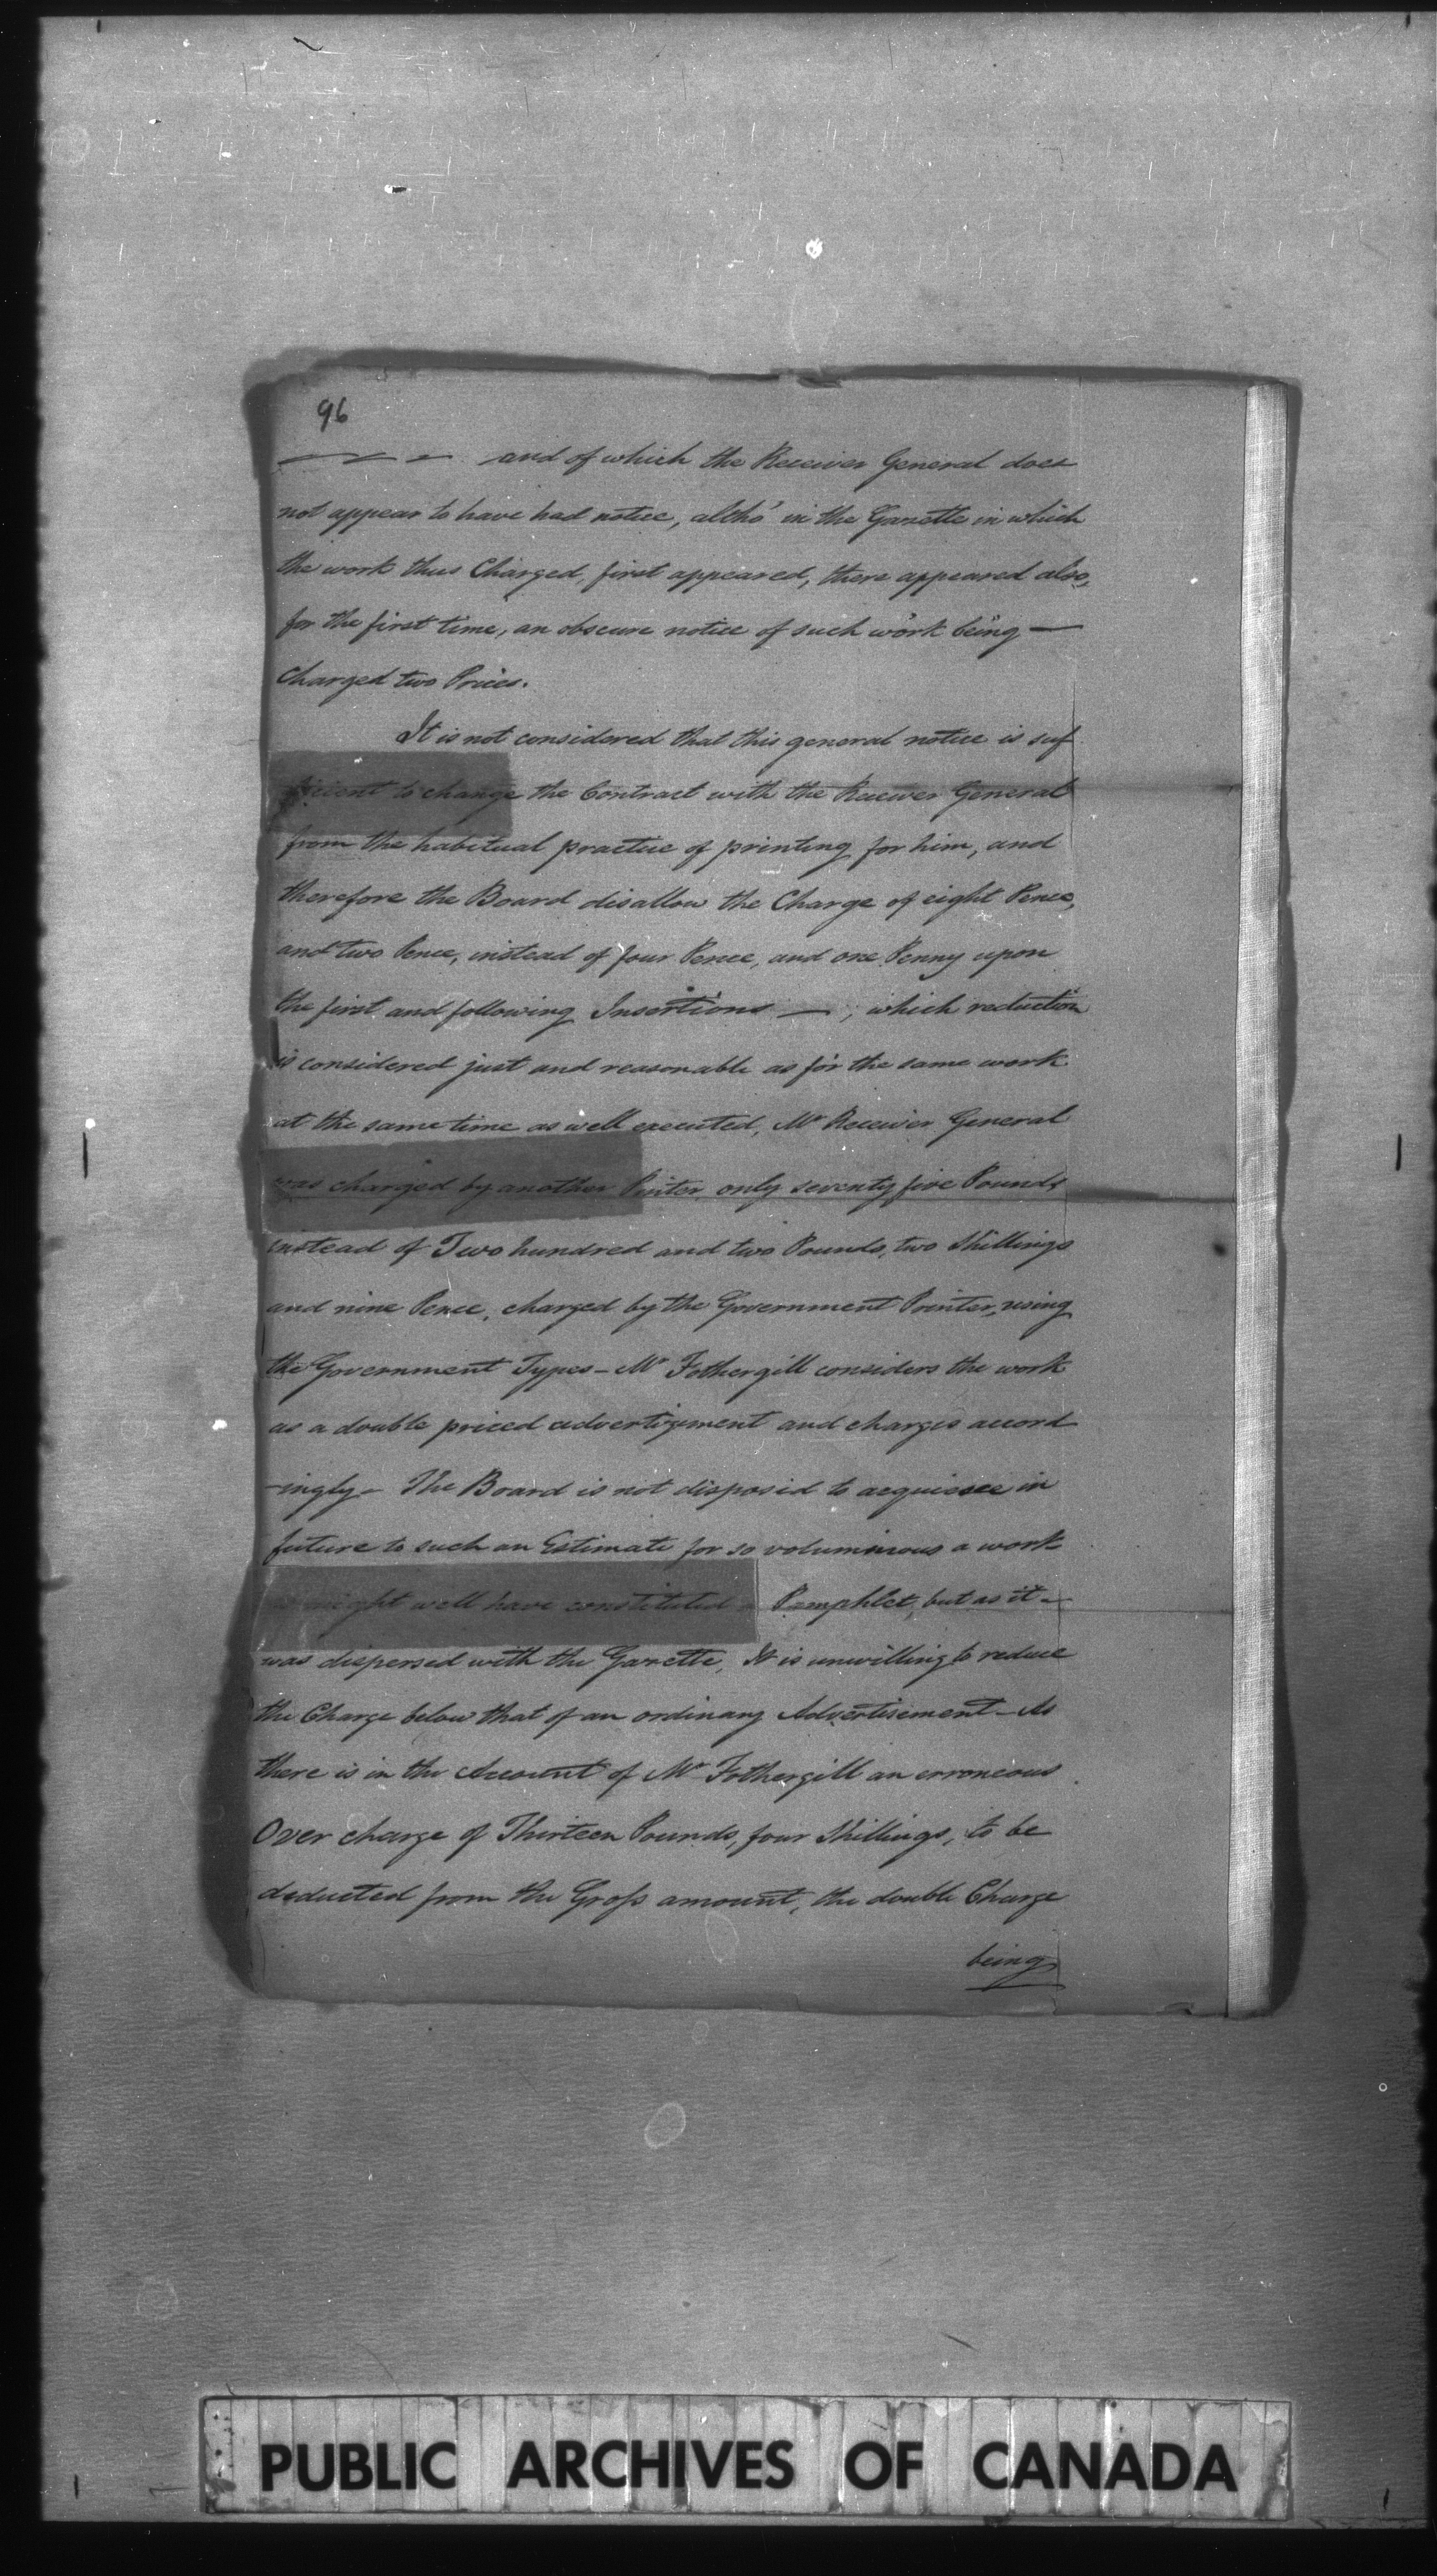 96
— — — and of which the Receiver General does
not appear to have had notice, altho' in the Gazette in which
the work thus Charged, first appeared, there appeared also,
for the first time, an obscure notice of such work being —
charged two Prices.
It is not considered that this general notice is suf
ficient to change the Contract with the Receiver General
from the habitual practice of printing for him, and
therefore the Board disallow the Charge of eight Pence,
and two Pence, instead of four Pence, and one Penny upon
the first and following Insertions — ; which reduction
is considered just and reasonable as for the same work
at the same time as well executed, Mr Receiver General
was charged by another Printer, only seventy five Pounds
instead of Two hundred and two Pounds, two Shillings
and nine Pence, charged by the Government Printer, using
the Government Types - Mr Fothergill considers the work
as a double priced advertizement and charges accord
-ingly - The Board is not disposed to acquiesce in
future to such an Estimate for so voluminous a work
might well have constituted a Pamphlet, but as it -
was dispersed with the Gazette, It is unwilling to reduce
the Charge below that of an ordinary Advertisement - As
there is in the Account of Mr Fothergill an erroneous
Over charge of Thirteen Pounds, four Shillings, to be
deducted from the Gross amount, the double Charge
being
PUBLIC ARCHIVES OF CANADA